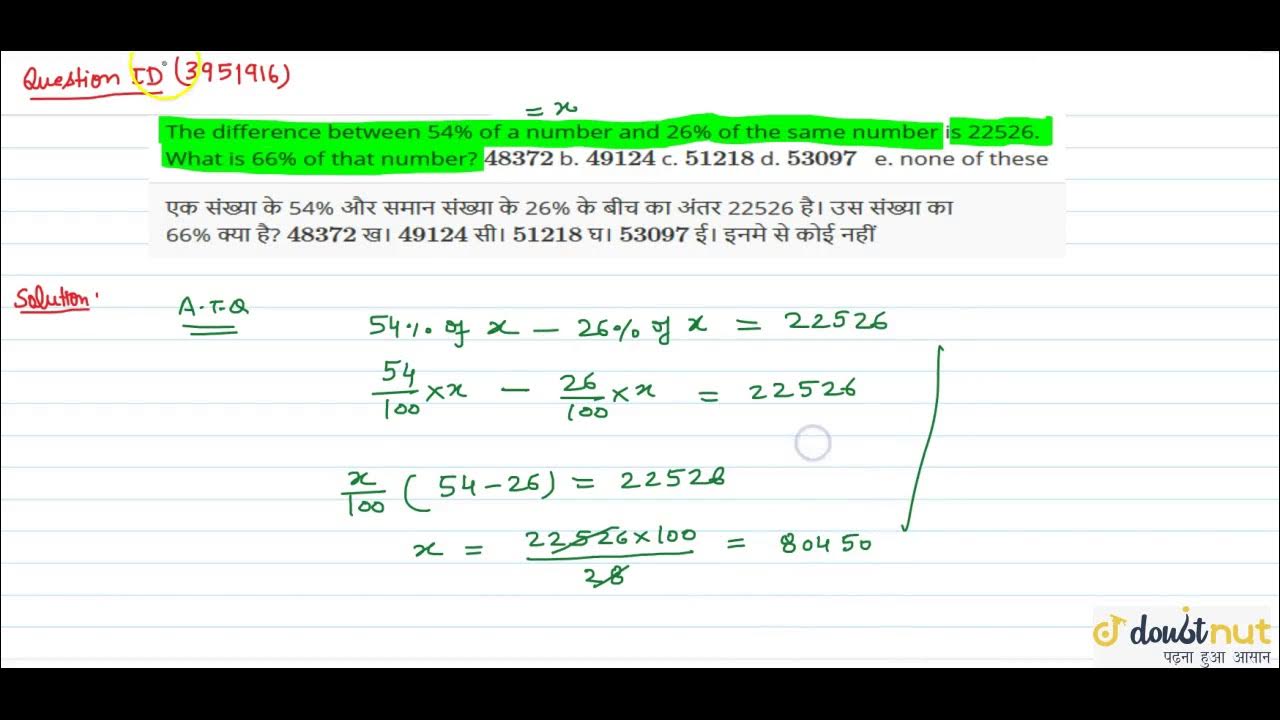 Question ID (3951916)
= x
The difference between 54% of a number and 26% of the same number is 22526.
What is 66% of that number? 48372 b. 49124 c. 51218 d. 53097 e. none of these
एक संख्या के 54% और समान संख्या के 26% के बीच का अंतर 22526 है। उस संख्या का
66% क्या है? 48372 ख। 49124 सी। 51218 घ। 53097 ई। इनमे से कोई नहीं
Solution.
A.T.Q
54% of x - 26% of x = 22526
54/100 × x - 26/100 × x = 22526
x/100 (54-26) = 22526
x = 22526×100/28 = 80450
doubtnut
पढ़ना हुआ आसान